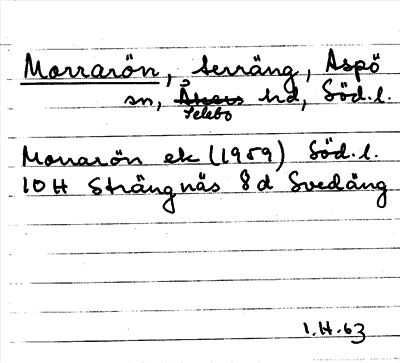 Morrarön, terräng, Aspö
sn, Åkers hd, Söd.l.
Selebo
Morrarön ek (1959) Söd.l.
10 H Strängnäs 8 d Svedäng
1.H.63